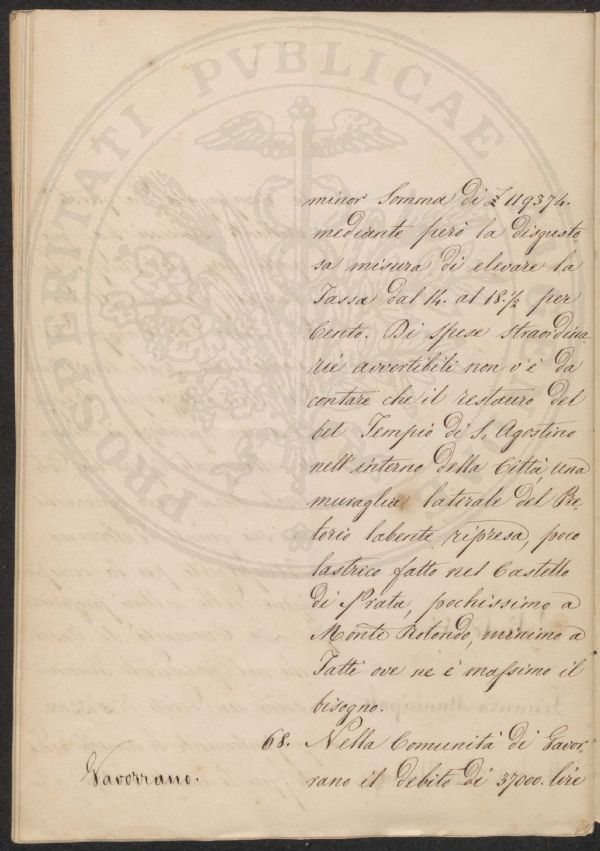 PROSPERITATI PVBLICAE
minor Somma di £ 119374.
mediante però la disgusto-
sa misura di elevare la
Tassa dal 14. al 18.½ per
Cento. Di spese straordina
rie avvertibili non v'è da
contare che il restauro del
bel Tempio di S. Agostino
nell'interno della Città, una
muraglia laterale del Pre-
torio labente ripresa, poco
lastrico fatto nel Castello
di Prata, pochissimo a
Monte Rotondo, minimo a
Tatti ove ne è massimo il
bisogno.
68. Nella Comunità di Gavor-
Gavorrano.
rano il debito di 37000. lire